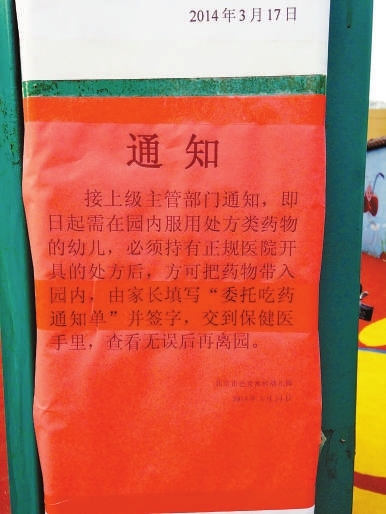 2014年3月17日
通知
接上级主管部门通知，即
日起需在园内服用处方类药物
的幼儿，必须持有正规医院开
具的处方后，方可把药物带入
园内，由家长填写“委托吃药
通知单”并签字，交到保健医
手里，查看无误后再离园。